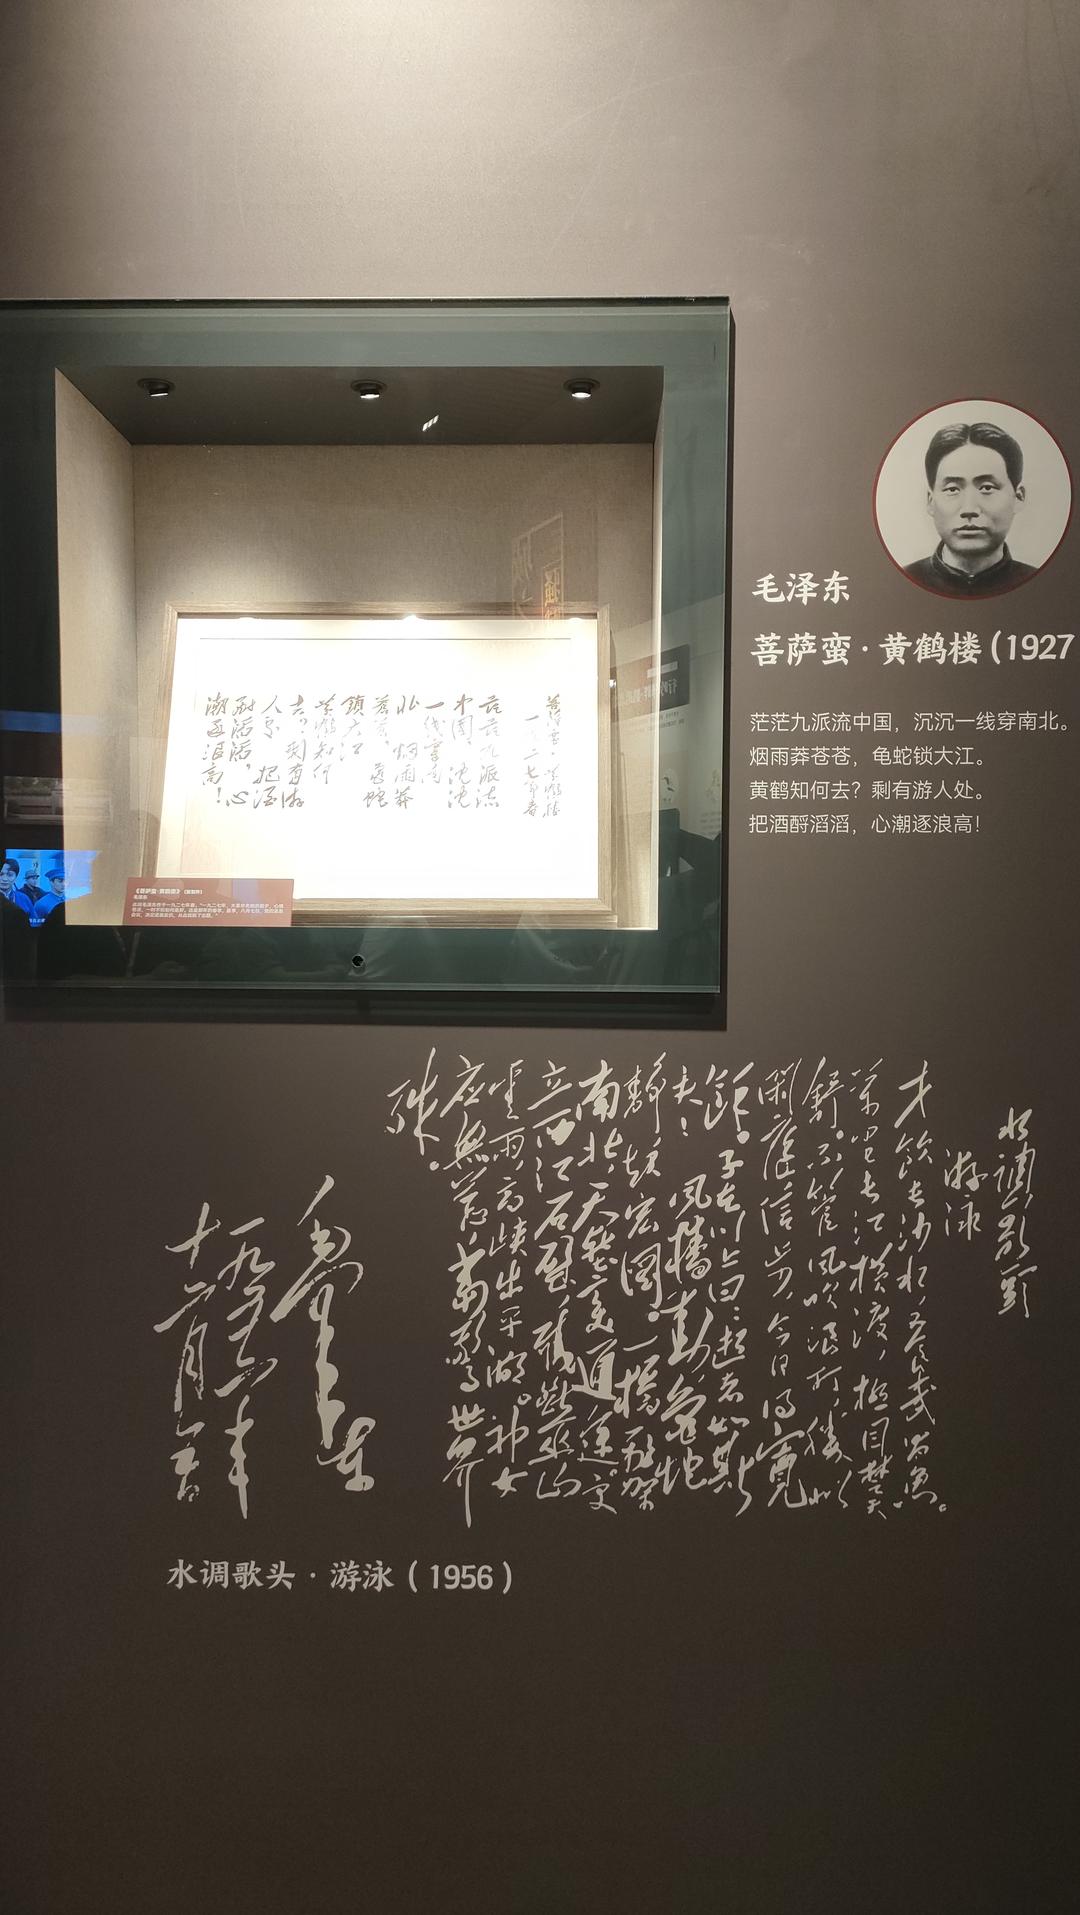 毛泽东
菩萨蛮·黄鹤楼(1927
茫茫九派流中国，沉沉一线穿南北。
烟雨莽苍苍，龟蛇锁大江。
黄鹤知何去？剩有游人处。
把酒酹滔滔，心潮逐浪高！
茫茫九派流
中国，沈沈
一线穿南
北。烟雨莽
蒼蒼，龟蛇
鎖大江
黄鹤知何
去？剩有游
人处。把酒
酹滔滔，心
潮逐浪高！
《菩萨蛮·黄鹤楼》（复制件）
毛泽东
水調歌頭
游泳
才飲长沙水，又食武昌魚。
萬里长江横渡，极目楚天
舒。不管风吹浪打，勝似
閑庭信步，今日得寬
餘。子在川上曰：逝者如斯
夫！风樯動，龜蛇
靜，起宏圖。一橋飛架
南北，天塹变通途。更
立西江石壁，截断巫山
雲雨，高峡出平湖。神女
应無恙，當驚世界
殊。
毛泽东
一九五六年
十二月五日
水调歌头·游泳（1956）